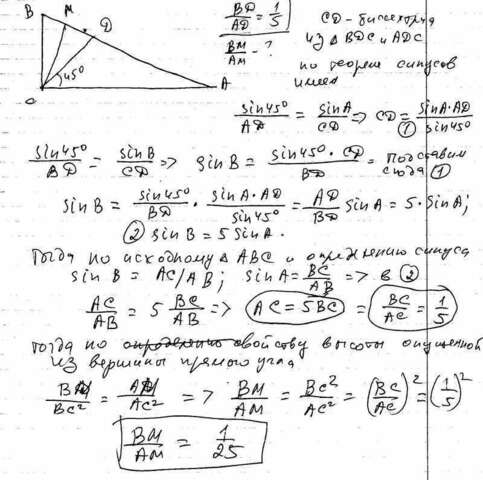 B M D
45°
C A
BD/AD = 1/5
BM/AM - ?
CD - биссектриса
из Δ BDC и ADC
по теореме синусов
имеем
sin45°/AD = sinA/CD => CD = sinA·AD/sin45° ①
sin45°/BD = sinB/CD => sinB = sin45°·CD/BD = Подставим сюда ①
sinB = sin45°/BD · sinA·AD/sin45° = AD/BD sinA = 5·sinA;
② sinB = 5 sinA.
Тогда по исходному Δ ABC и определению синуса
sinB = AC/AB; sinA = BC/AB => в ②
AC/AB = 5 BC/AB => AC = 5BC = BC/AC = 1/5
тогда по свойству высоты опущенной
из вершины прямого угла
BM/BC² = AM/AC² => BM/AM = BC²/AC² = (BC/AC)² = (1/5)²
BM/AM = 1/25